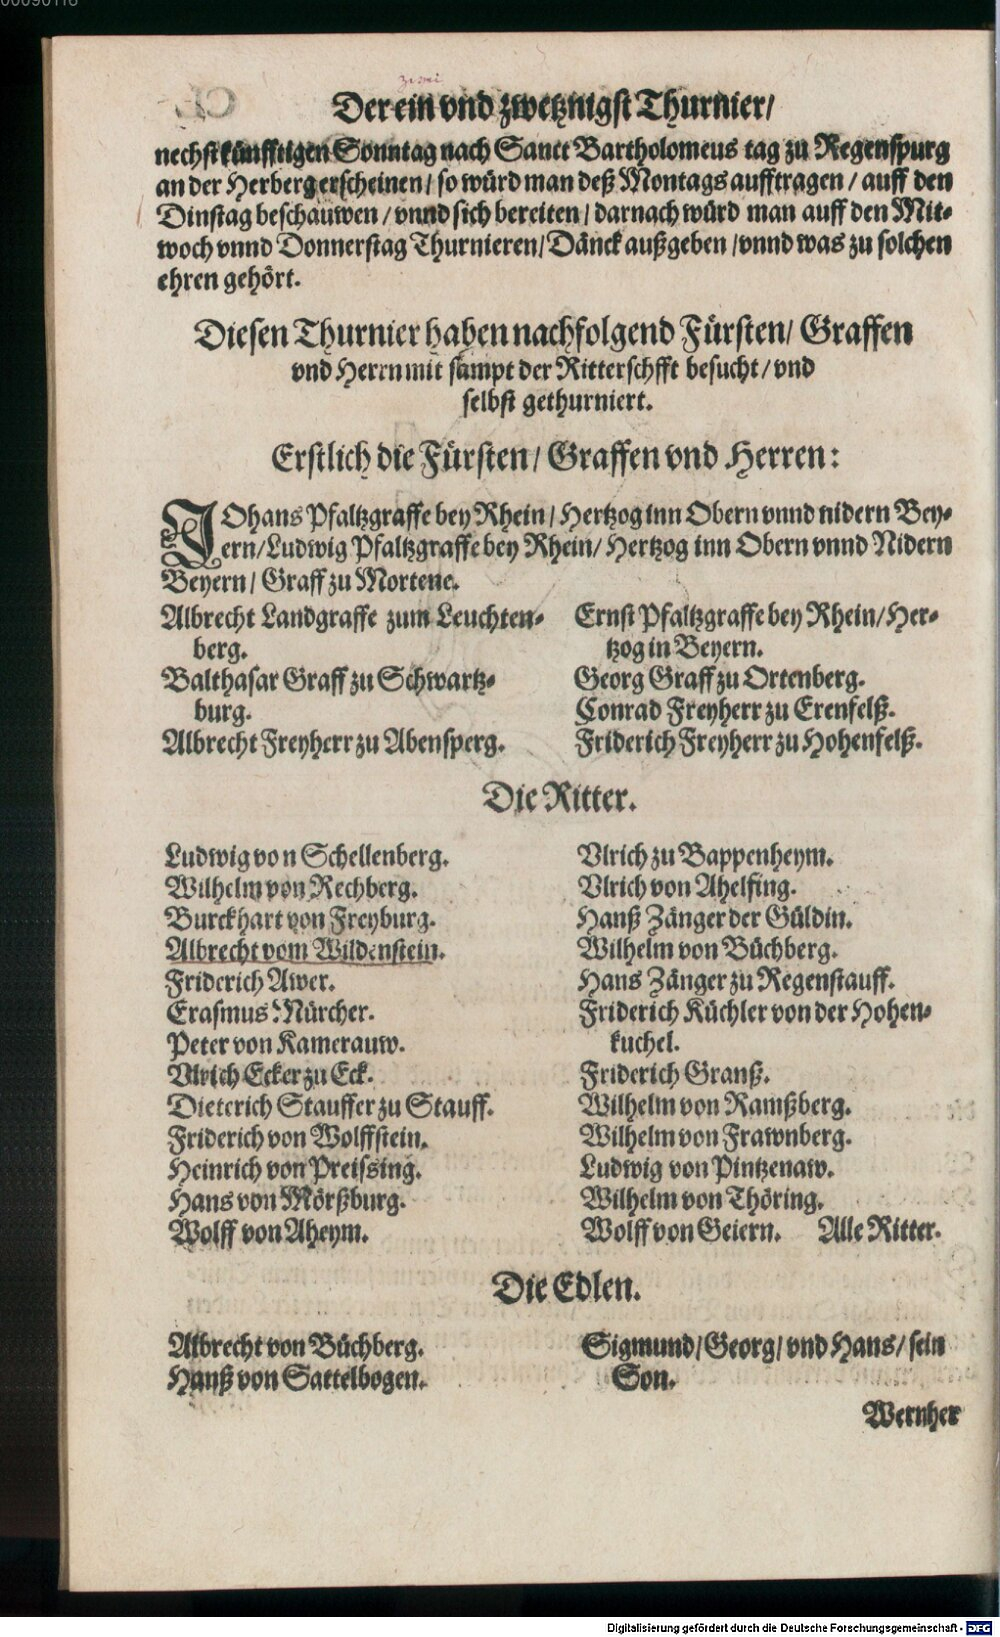 00090116
zwei
Der ein vnd zwetznigst Thurnier/
nechst künfftigen Sonntag nach Sanct Bartholomeus tag zu Regenspurg
an der Herberg erscheinen/ so würd man deß Montags aufftragen/ auff den
Dinstag beschauwen/ vnnd sich bereiten/ darnach würd man auff den Mit-
woch vnnd Donnerstag Thurnieren/ Dänck außgeben/ vnnd was zu solchen
ehren gehört.
Diesen Thurnier haben nachfolgend Fürsten/ Graffen
vnd Herrn mit sampt der Ritterschfft besucht/ vnd
selbst gethurniert.
Erstlich die Fürsten/ Graffen vnd Herren:
JOhans Pfaltzgraffe bey Rhein/ Hertzog inn Obern vnnd nidern Bey-
ern/ Ludwig Pfaltzgraffe bey Rhein/ Hertzog inn Obern vnnd Nidern
Beyern/ Graff zu Mortene.
Albrecht Landgraffe zum Leuchten-
berg.
Balthasar Graff zu Schwartz-
burg.
Albrecht Freyherr zu Abensperg.
Ernst Pfaltzgraffe bey Rhein/ Her-
tzog in Beyern.
Georg Graff zu Ortenberg.
Conrad Freyherr zu Erenfelß.
Friderich Freyherr zu Hohenfelß.
Die Ritter.
Ludwig von Schellenberg.
Wilhelm von Rechberg.
Burckhart von Freyburg.
Albrecht vom Wildenstein.
Friderich Awer.
Erasmus Mürcher.
Peter von Kamerauw.
Vlrich Ecker zu Eck.
Dieterich Stauffer zu Stauff.
Friderich von Wolffstein.
Heinrich von Preissing.
Hans von Mörßburg.
Wolff von Aheym.
Vlrich zu Bappenheym.
Vlrich von Ahelfing.
Hanß Zänger der Güldin.
Wilhelm von Büchberg.
Hans Zänger zu Regenstauff.
Friderich Küchler von der Hohen-
kuchel.
Friderich Granß.
Wilhelm von Ramßberg.
Wilhelm von Frawnberg.
Ludwig von Pintzenaw.
Wilhelm von Thöring.
Wolff von Geiern. Alle Ritter.
Die Edlen.
Albrecht von Büchberg.
Hanß von Sattelbogen.
Sigmund/ Georg/ vnd Hans/ sein
Son.
Wernher
Digitalisierung gefördert durch die Deutsche Forschungsgemeinschaft - DFG